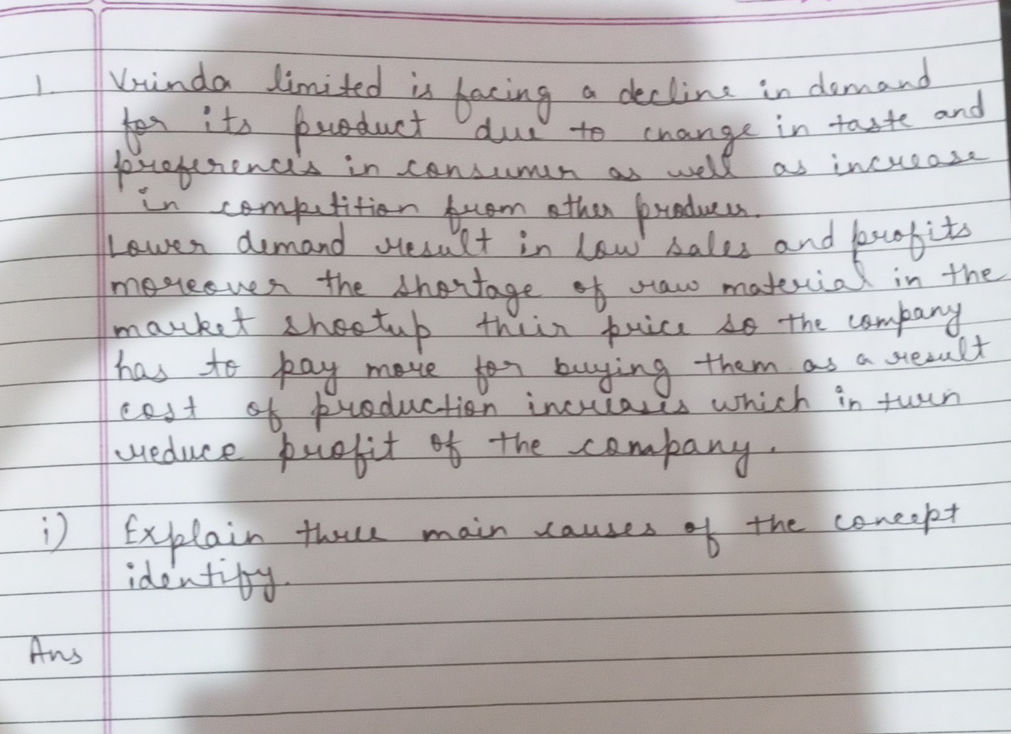 1. Vrinda limited is facing a decline in demand
for its product due to change in taste and
preferences in consumer as well as increase
in competition from other producers.
Lower demand result in low sales and profits
moreover the shortage of raw material in the
market shootup their price so the company
has to pay more for buying them as a result
cost of production increases which in turn
reduce profit of the company.
i) Explain three main causes of the concept
identify.
Ans